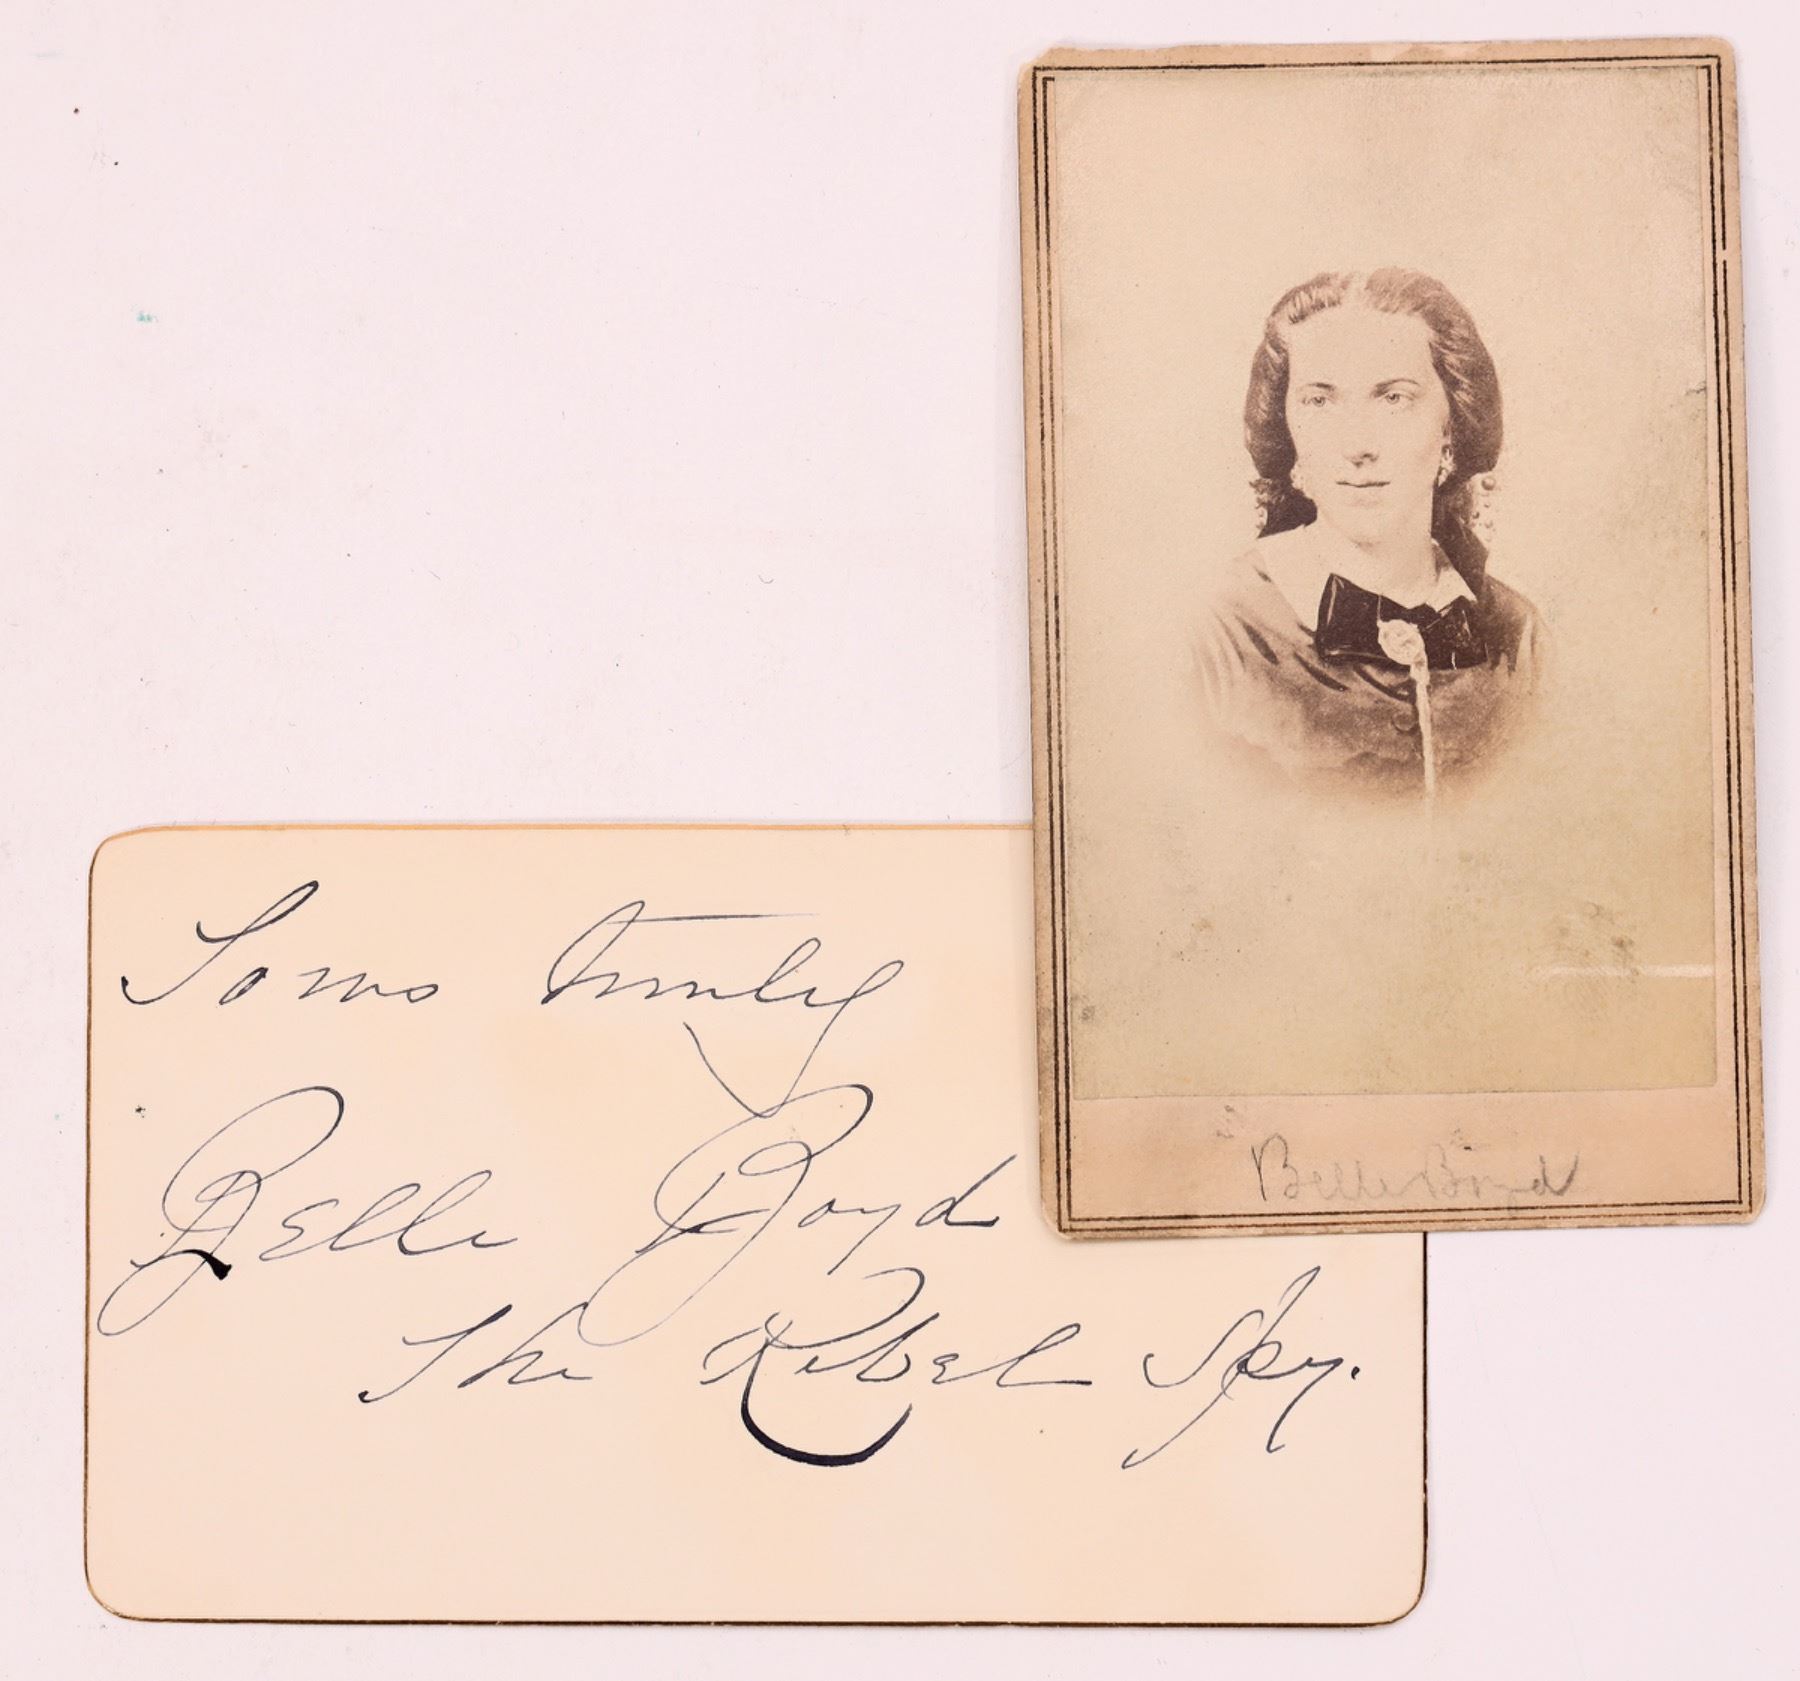 Yours truly
Belle Boyd
The Rebel Spy.
Belle Boyd